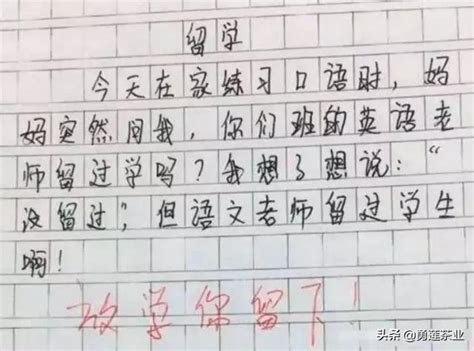 留学
今天在家练习口语时，妈
妈突然问我，你们班的英语老
师留过学吗？我想了想说：“
没留过”，但语文老师留过学生
啊！
放学你留下！
头条@勇莲茶业